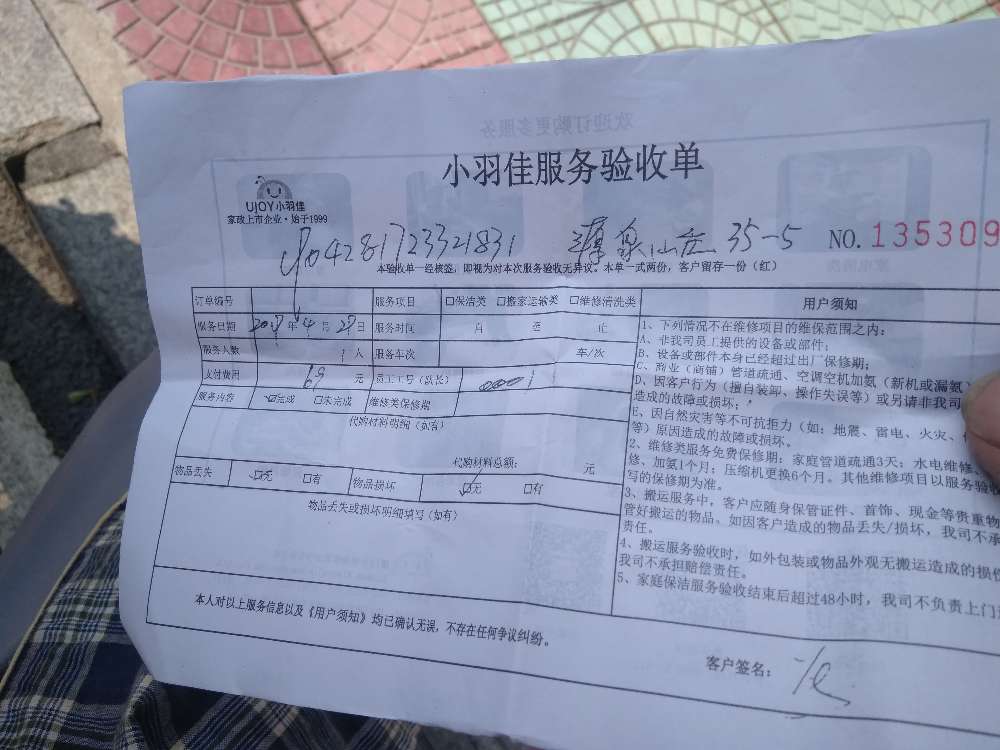 小羽佳服务验收单
UJOY小羽佳
家政上市企业·始于1999
04281723321831 源泉山庄 35-5
NO. 135309
本验收单一经核签，即视为对本次服务验收无异议。本单一式两份，客户留存一份（红）
订单编号 服务项目 □保洁类 □搬家运输类 □维修清洗类
服务日期 年 4 月 27 日 服务时间 自 至 止
服务人数 1 人 服务车次 车/次
支付费用 69 元 员工工号（队长）
服务内容 ☑完成 □未完成 维修类保修期
代购材料明细（如有）
代购材料总额： 元
物品丢失 ☑无 □有 物品损坏 ☑无 □有
物品丢失或损坏明细填写（如有）
用户须知
1、下列情况不在维修项目的维保范围之内：
A、非我司员工提供的设备或部件；
B、设备或部件本身已经超过出厂保修期；
C、商业（商铺）管道疏通、空调空机加氨（新机或漏氨）
D、因客户行为（擅自装卸、操作失误等）或另请非我司
造成的故障或损坏；
E、因自然灾害等不可抗拒力（如：地震、雷电、火灾、
等）原因造成的故障或损坏。
2、维修类服务免费保修期：家庭管道疏通3天；水电维修、
修、加氨1个月；压缩机更换6个月。其他维修项目以服务验收
写的保修期为准。
3、搬运服务中，客户应随身保管证件、首饰、现金等贵重物
管好搬运的物品。如因客户造成的物品丢失/损坏，我司不承
责任。
4、搬运服务验收时，如外包装或物品外观无搬运造成的损
我司不承担赔偿责任。
5、家庭保洁服务验收结束后超过48小时，我司不负责上门
本人对以上服务信息以及《用户须知》均已确认无误，不存在任何争议纠纷。
客户签名：